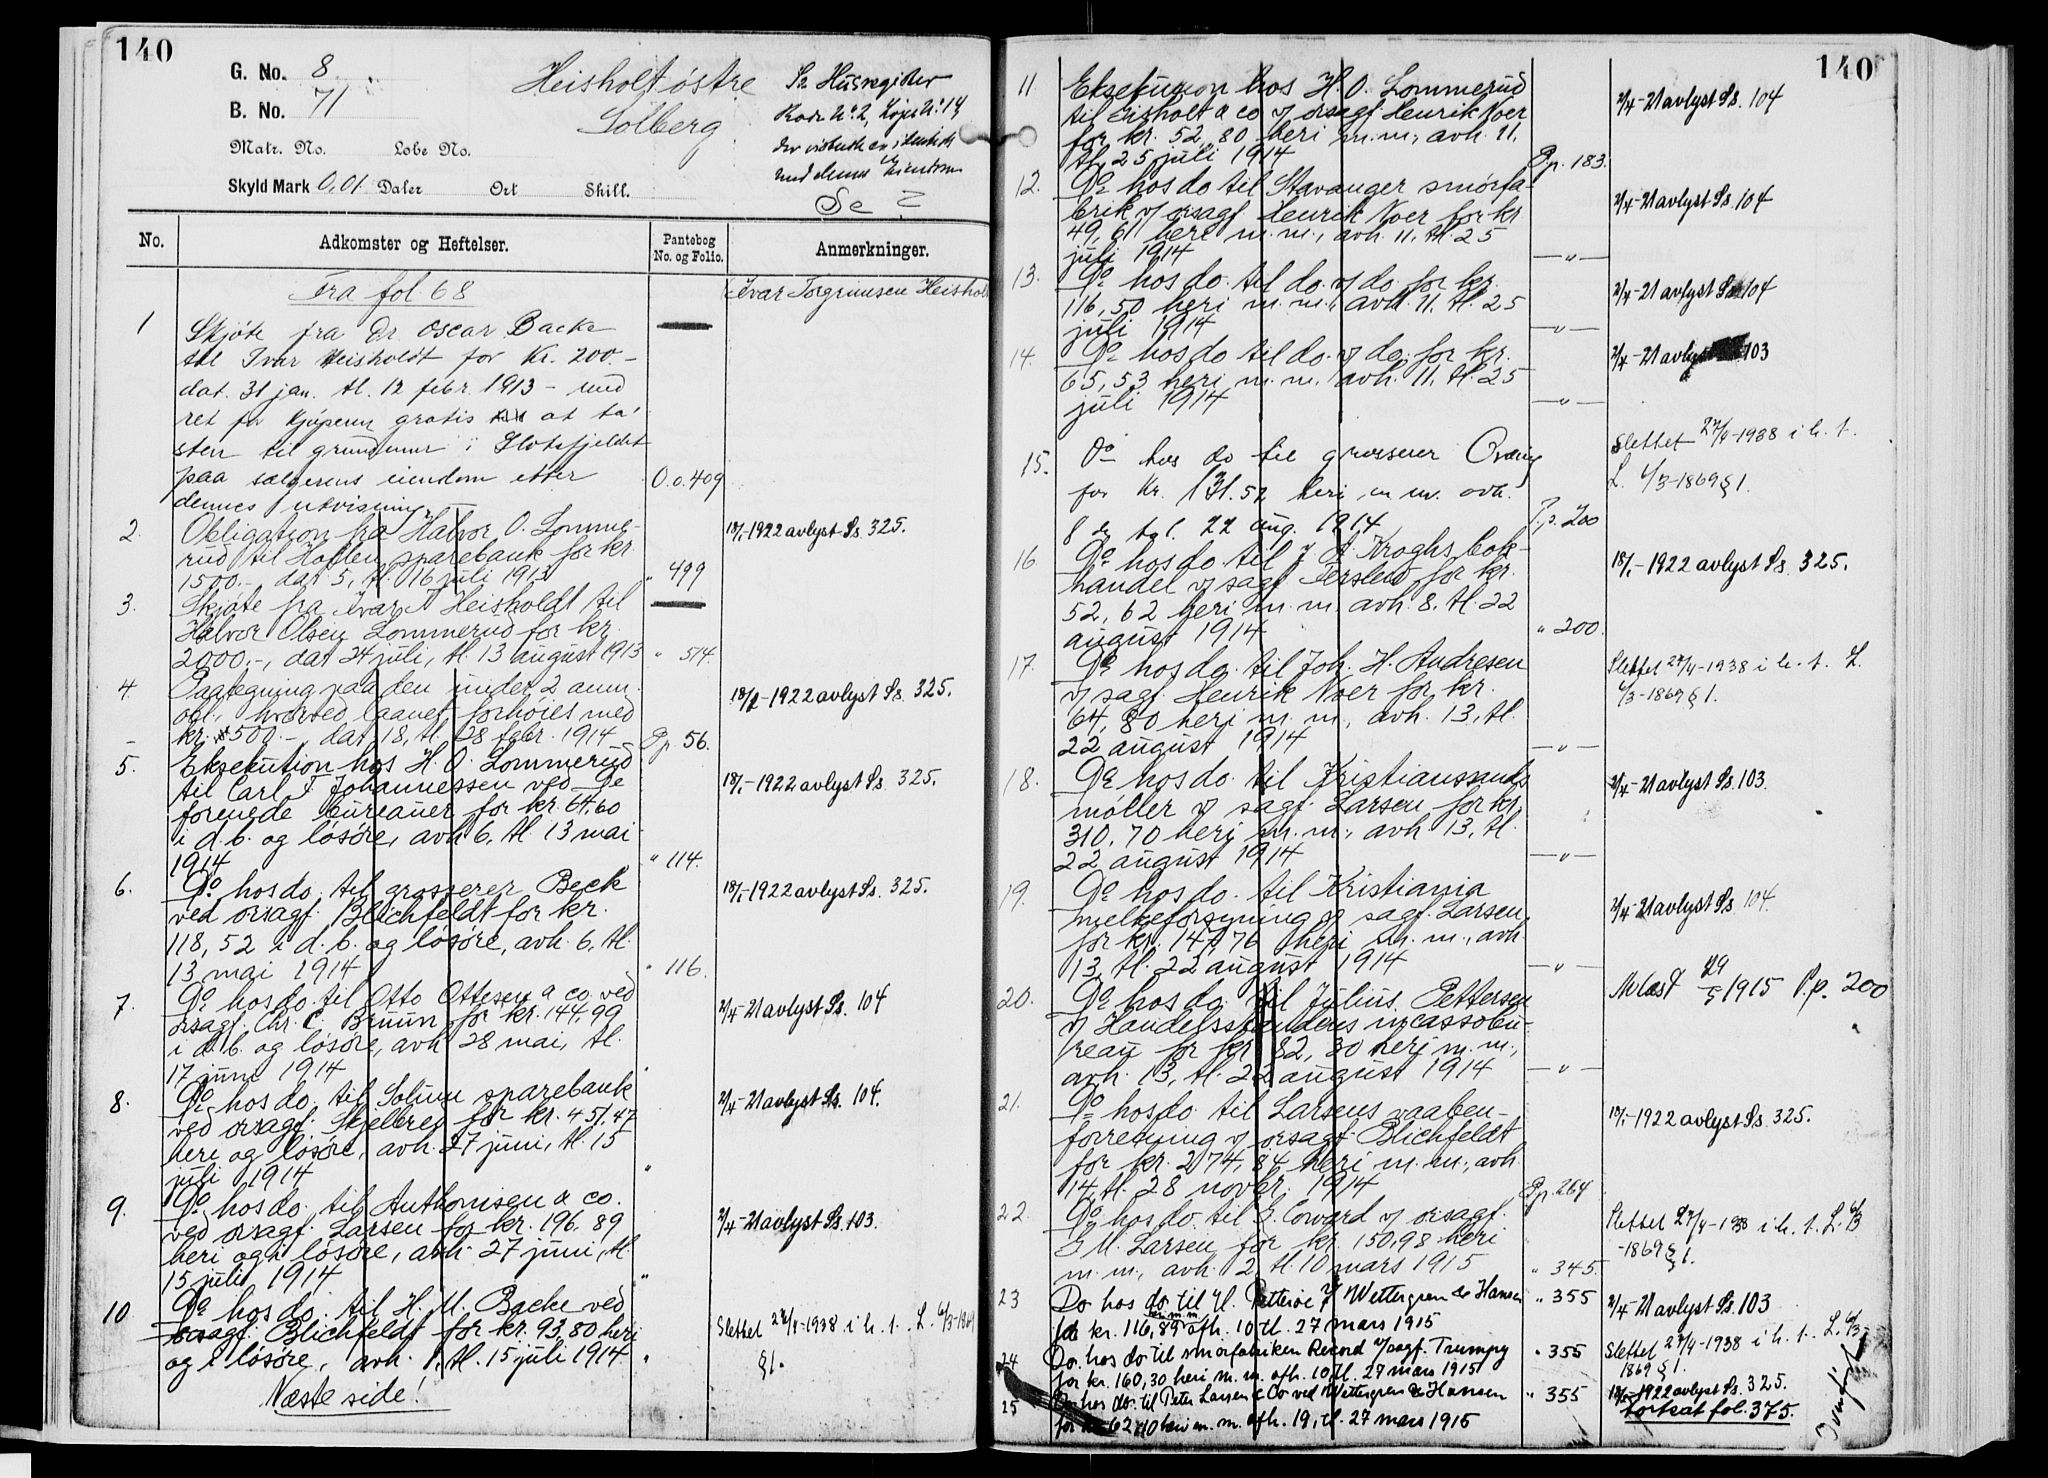 140
G. No. 8
B. No. 71
Matr. No. Løbe No.
Skyld Mark 0,01 Daler Ort Skill.
Heisholt østre
Solberg
Se Husregister
Rode No. 2, Løpe No. 14
der
med denne Eiendom
Se
No.
Adkomster og Heftelser.
Pantebog No. og Folio.
Anmerkninger.
Fra fol 68
Ivar Torgrimsen Heishol
1 Skjøte fra Dr. Oscar Backe
til Ivar Heisholdt for Kr. 200-
dat. 31 jan. tl. 12 febr. 1913 - med
ret for kjøperen gratis at ta
sten til grundmur i
paa sælgerens eiendom efter
dennes utvisning. O.o. 409
2. Obligation fra Halvor O. Lomme-
rud til Hollen sparebank for kr.
1500.-, dat 5, tl. 16 juli 1913 " 499
18/1-1922 avlyst Ss. 325.
3. Skjøte fra Ivar T Heisholdt til
Halvor Olsen Lommerud for kr.
2000.-, dat 24 juli, tl. 13 august 1913 " 514.
4. Paategning paa den under 2 anm.
obl., hvorved laanet forhøies med
kr. 500.-, dat. 18, tl. 28 febr. 1914 Pp. 56.
18/1-1922 avlyst Ss. 325.
5. Eksekution hos H. O. Lommerud
til Carl F Johannessen ved De
forenede bureauer for kr. 64.60
i d. b. og løsøre, avh 6, tl 13 mai
1914 " 114.
18/1-1922 avlyst Ss. 325.
6. Do. hos do. til grosserer Beck
ved orsagf. Blichfeldt for kr.
118,52 i d. b. og løsøre, avh. 6, tl.
13 mai 1914 " 116.
18/1-1922 avlyst Ss. 325.
7. Do hos do. til Otto Ottesen & co. ved
orsagf. Chr. C. Bruun for kr. 144,99
i d. b. og løsøre, avh 28 mai, tl.
17 juni 1914 "
2/4-21 avlyst Ss. 104
8. Do. hos do. til Solum sparebank
ved orsagf. Skjelbred for kr. 451.47
heri og løsøre, avh. 27 juni, tl. 15
juli 1914 "
2/4-21 avlyst Ss. 104.
9. Do hos do. til Anthonisen & co.
ved orsagf. Larsen for kr. 196,89
heri og i løsøre, avh. 27 juni, tl.
15 juli 1914 "
2/4-21 avlyst Ss. 103.
10 Do hos do. til H. M. Backe ved
orsagf. Blichfeldt for kr. 93,80 heri
og i løsøre, avh. 1, tl. 15 juli 1914. "
Slettet 27/4-1938 i h. t. L. 6/3-1869
§1.
Næste side!
140
11 Eksekution hos H. O. Lommerud
til Eisholt & co v/ orsagf Henrik Noer
for kr. 52,80 heri m. m., avh. 11.
tl. 25 juli 1914 Pp. 183.
2/4-21 avlyst Ss. 104
12. Do hos do til Stavanger smørfa-
brik v/ orsagf Henrik Noer for kr
49,61 heri m. m., avh. 11, tl. 25
juli 1914 -"-
2/4-21 avlyst Ss. 104
13. Do hos do. til do. v/ do. for kr.
116,50 heri m. m., avh. 11. tl. 25
juli 1914 -"-
2/4-21 avlyst Ss 104
14. Do hos do til do. v/ do. for kr.
65,53 heri m. m., avh. 11. tl. 25
juli 1914 -"-
2/4-21 avlyst 103
15. Do hos do til grosserer
for Kr. 131.52 heri m. m. avh.
8 og tgl. 22 aug. 1914 P.p. 200
Slettet 27/4-1938 i h. t.
L. 6/3-1869 §1.
16. Do hos do til J A Kroghs bok-
handel v/ sagf Terslew for kr.
52,62 heri m. m. avh. 8. tl. 22
august 1914 " 200.
18/1-1922 avlyst Ss. 325.
17. Do hos do. til Joh. H. Andresen
v/ sagf Henrik Noer for kr.
64,80 heri m. m., avh. 13, tl.
22 august 1914 -"-
Slettet 27/4-1938 i h. t. L.
6/3-1869 §1.
18. Do hos do. til Kristianssands
møller v/ sagf. Larsen for kr.
310,70 heri m. m., avh. 13, tl.
22 august 1914 -"-
2/4-21 avlyst Ss. 103.
19. Do hos do. til Kristiania
melkeforsyning v/ sagf. Larsen
for kr. 147,76 heri m. m., avh
13, tl. 22 august 1914 -"-
2/4-21 avlyst Ss. 104.
20. Do hos do. til Julius Pettersen
v/ Handelsstandens incassobu-
reau for kr 82,30 heri m. m.,
avh. 13, tl. 22 august 1914 -"-
Avlæst 29/5 1915 P.p. 200
21. Do hos do til Larsens vaaben-
forretning v/ orsagf. Blichfeldt
for kr. 274,84 heri m. m., avh.
14, tl. 28 novbr. 1914 Pp. 264
18/1-1922 avlyst Ss. 325.
22. Do hos do. til E. Coward v/ orsagf.
G M. Larsen for kr. 150,98 heri
m. m., avh. 2, tl. 10 mars 1915 " 345.
Slettet 27/4-1938 i h. t. L. 6/3
-1869 §1.
23 Do hos do til H. Petterøe v/ Wettergren & Hansen " 355
for kr. 116,89 heri m m afh. 10 tl. 27 mars 1915
2/4-21 avlyst Ss. 103
24 Do. hos do til smørfabriken Record v/ sagf. Trumpy " 355
for kr. 160,30 heri m. m. afh. 10 tl. 27 mars 1915
Slettet 27/4-1938 i h. t. L. 6/3-
1869 §1.
25 Do hos do. til Peter Larsen & Co ved Wettergren & Hansen " 355
for kr 62,10 heri m. m. afh. 19, tl. 27 mars 1915
18/1-1922 avlyst Ss. 325.
Fortsat fol. 375.